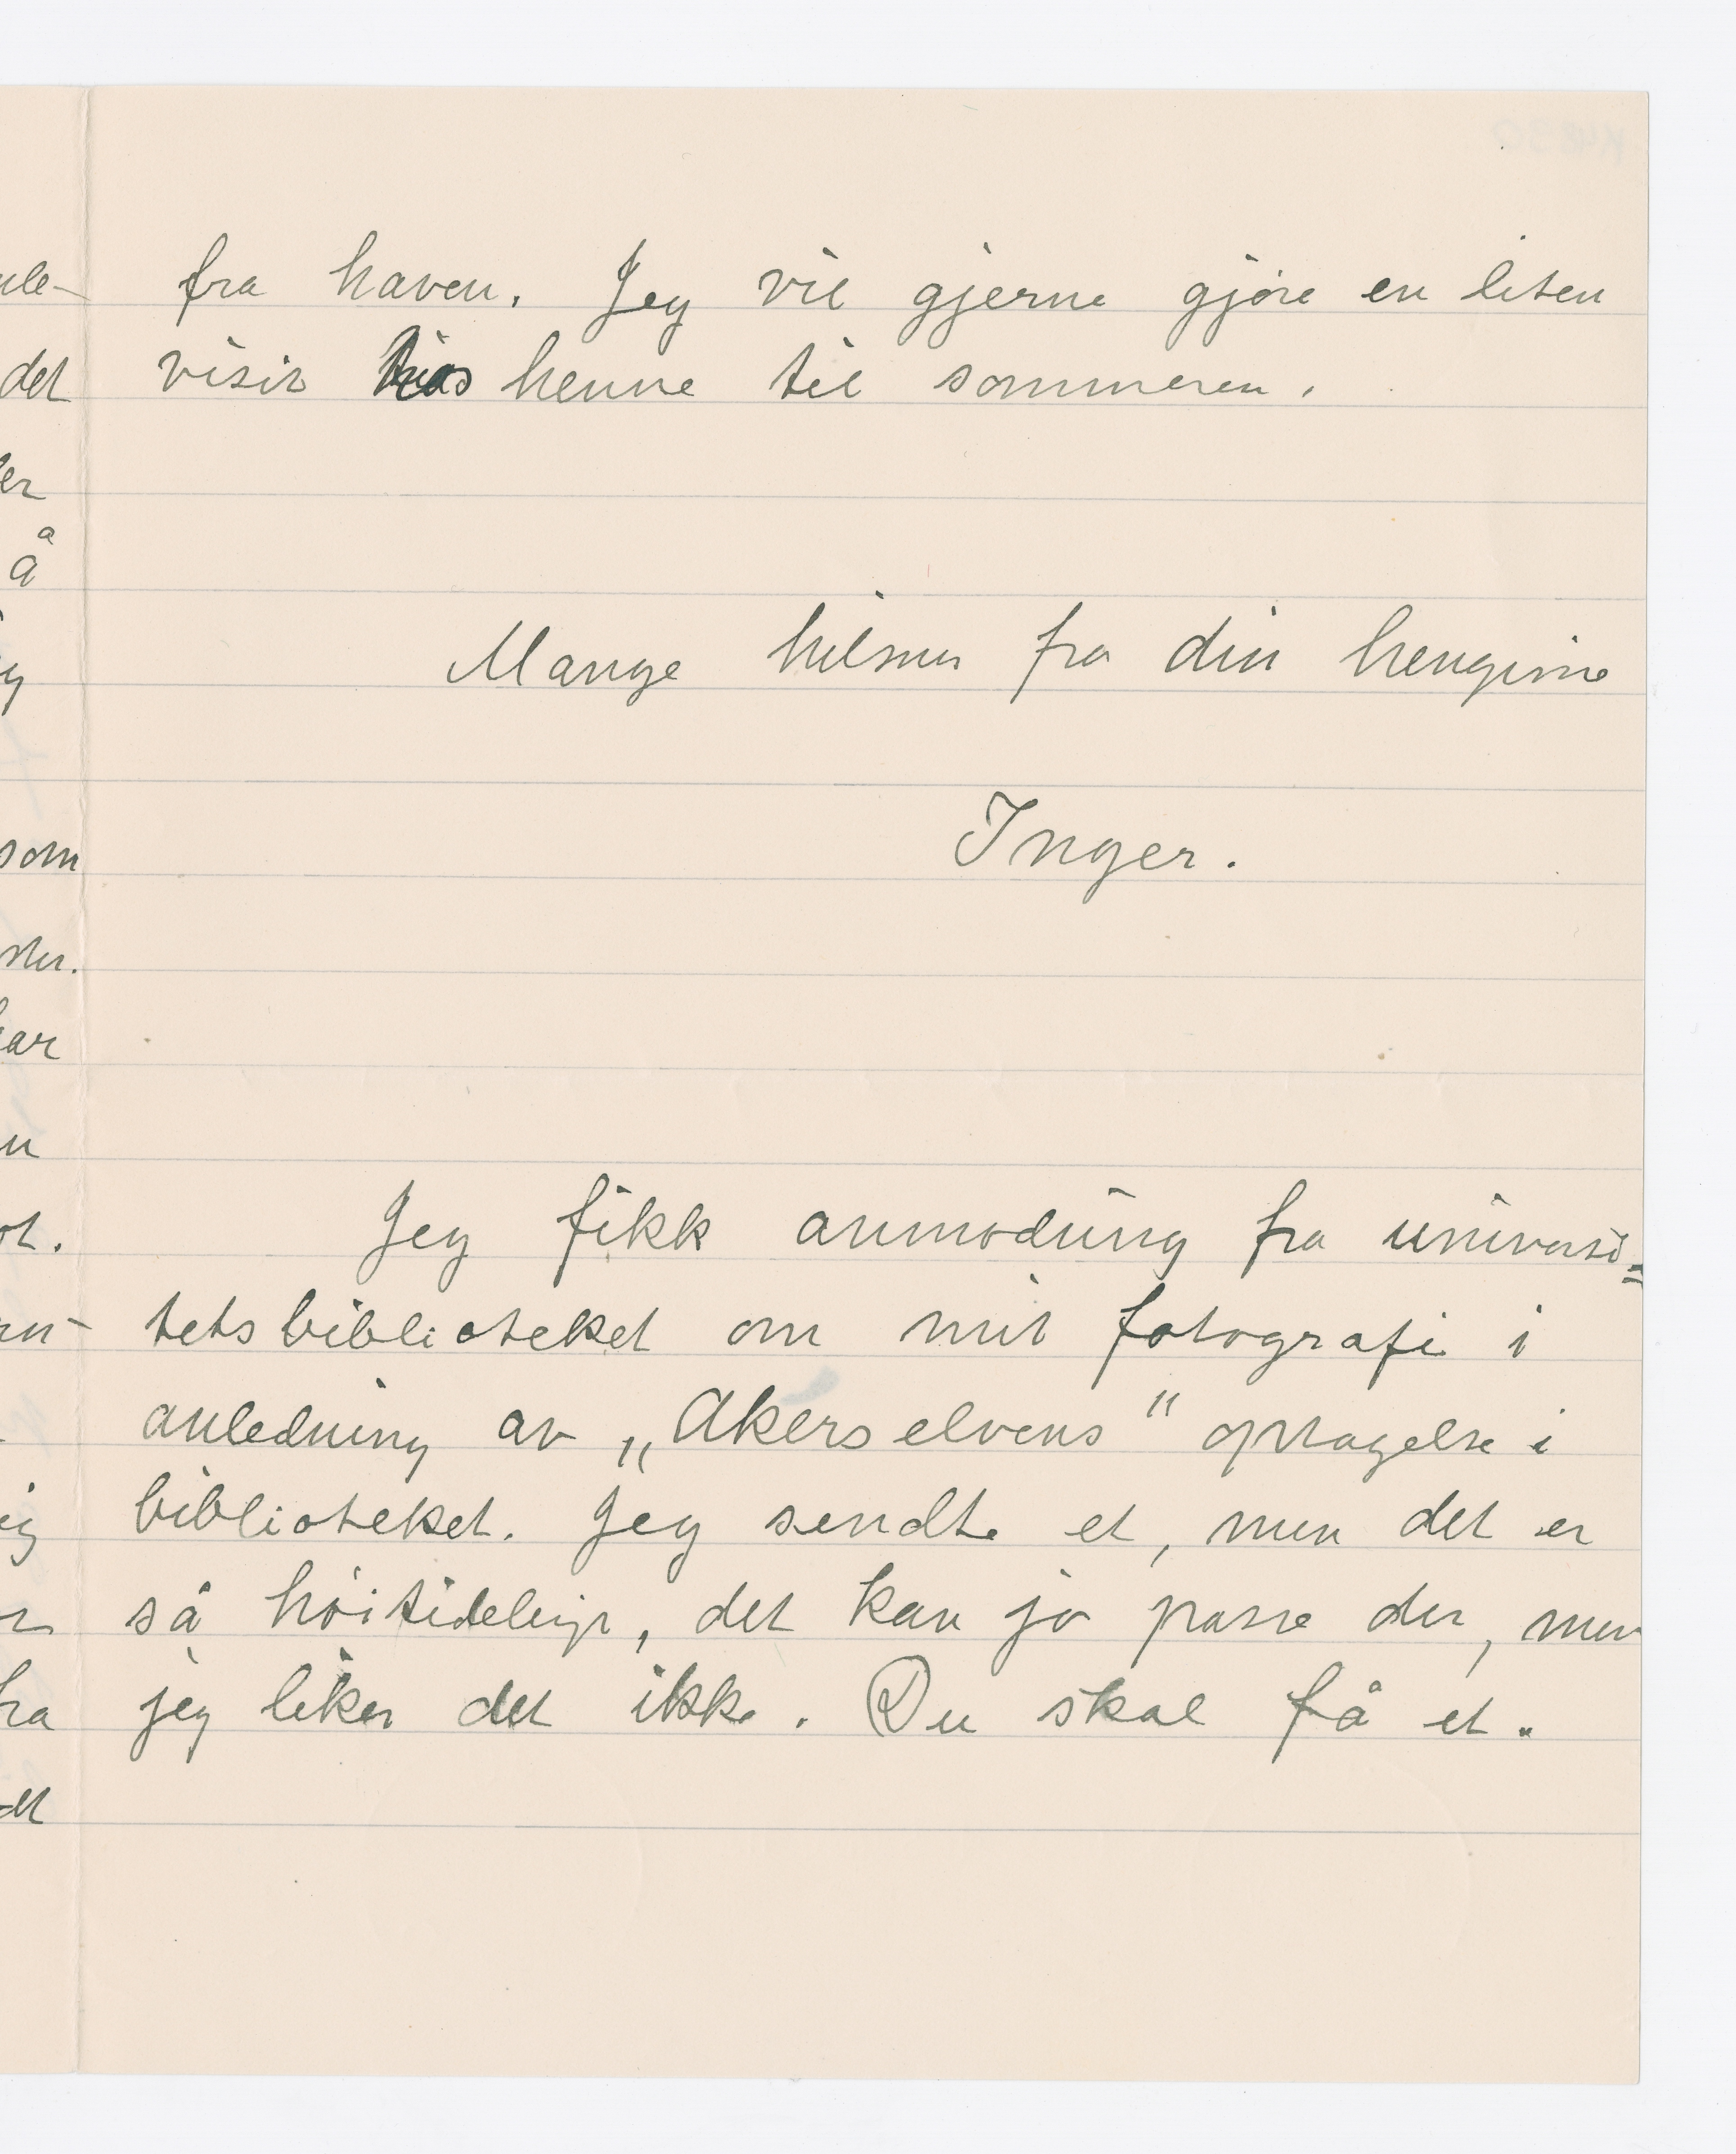 fra haven. Jeg vil gjerne gjøre en liten
visit hos henne til sommeren.
Mange hilsner fra din hengivne
Inger.
Jeg fikk anmodning fra universi=
tetsbiblioteket om mit fotografi i
anledning av „Akerselvens" optagelse i
biblioteket. Jeg sendte et, men det er
så høitidelig, det kan jo passe der, men
jeg liker det ikke. Du skal få et.
det
er
å
som
har
fra